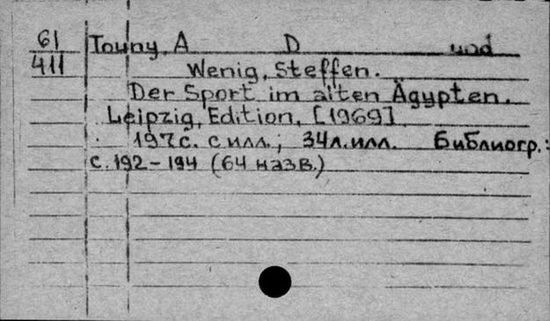 61 Touny, A D und
411 Wenig, Steffen.
Der Sport im alten Ägypten.
Leipzig, Edition, [1969]
197с. с илл.; 34л. илл. Библиогр.:
с. 192-194 (64 назв.)